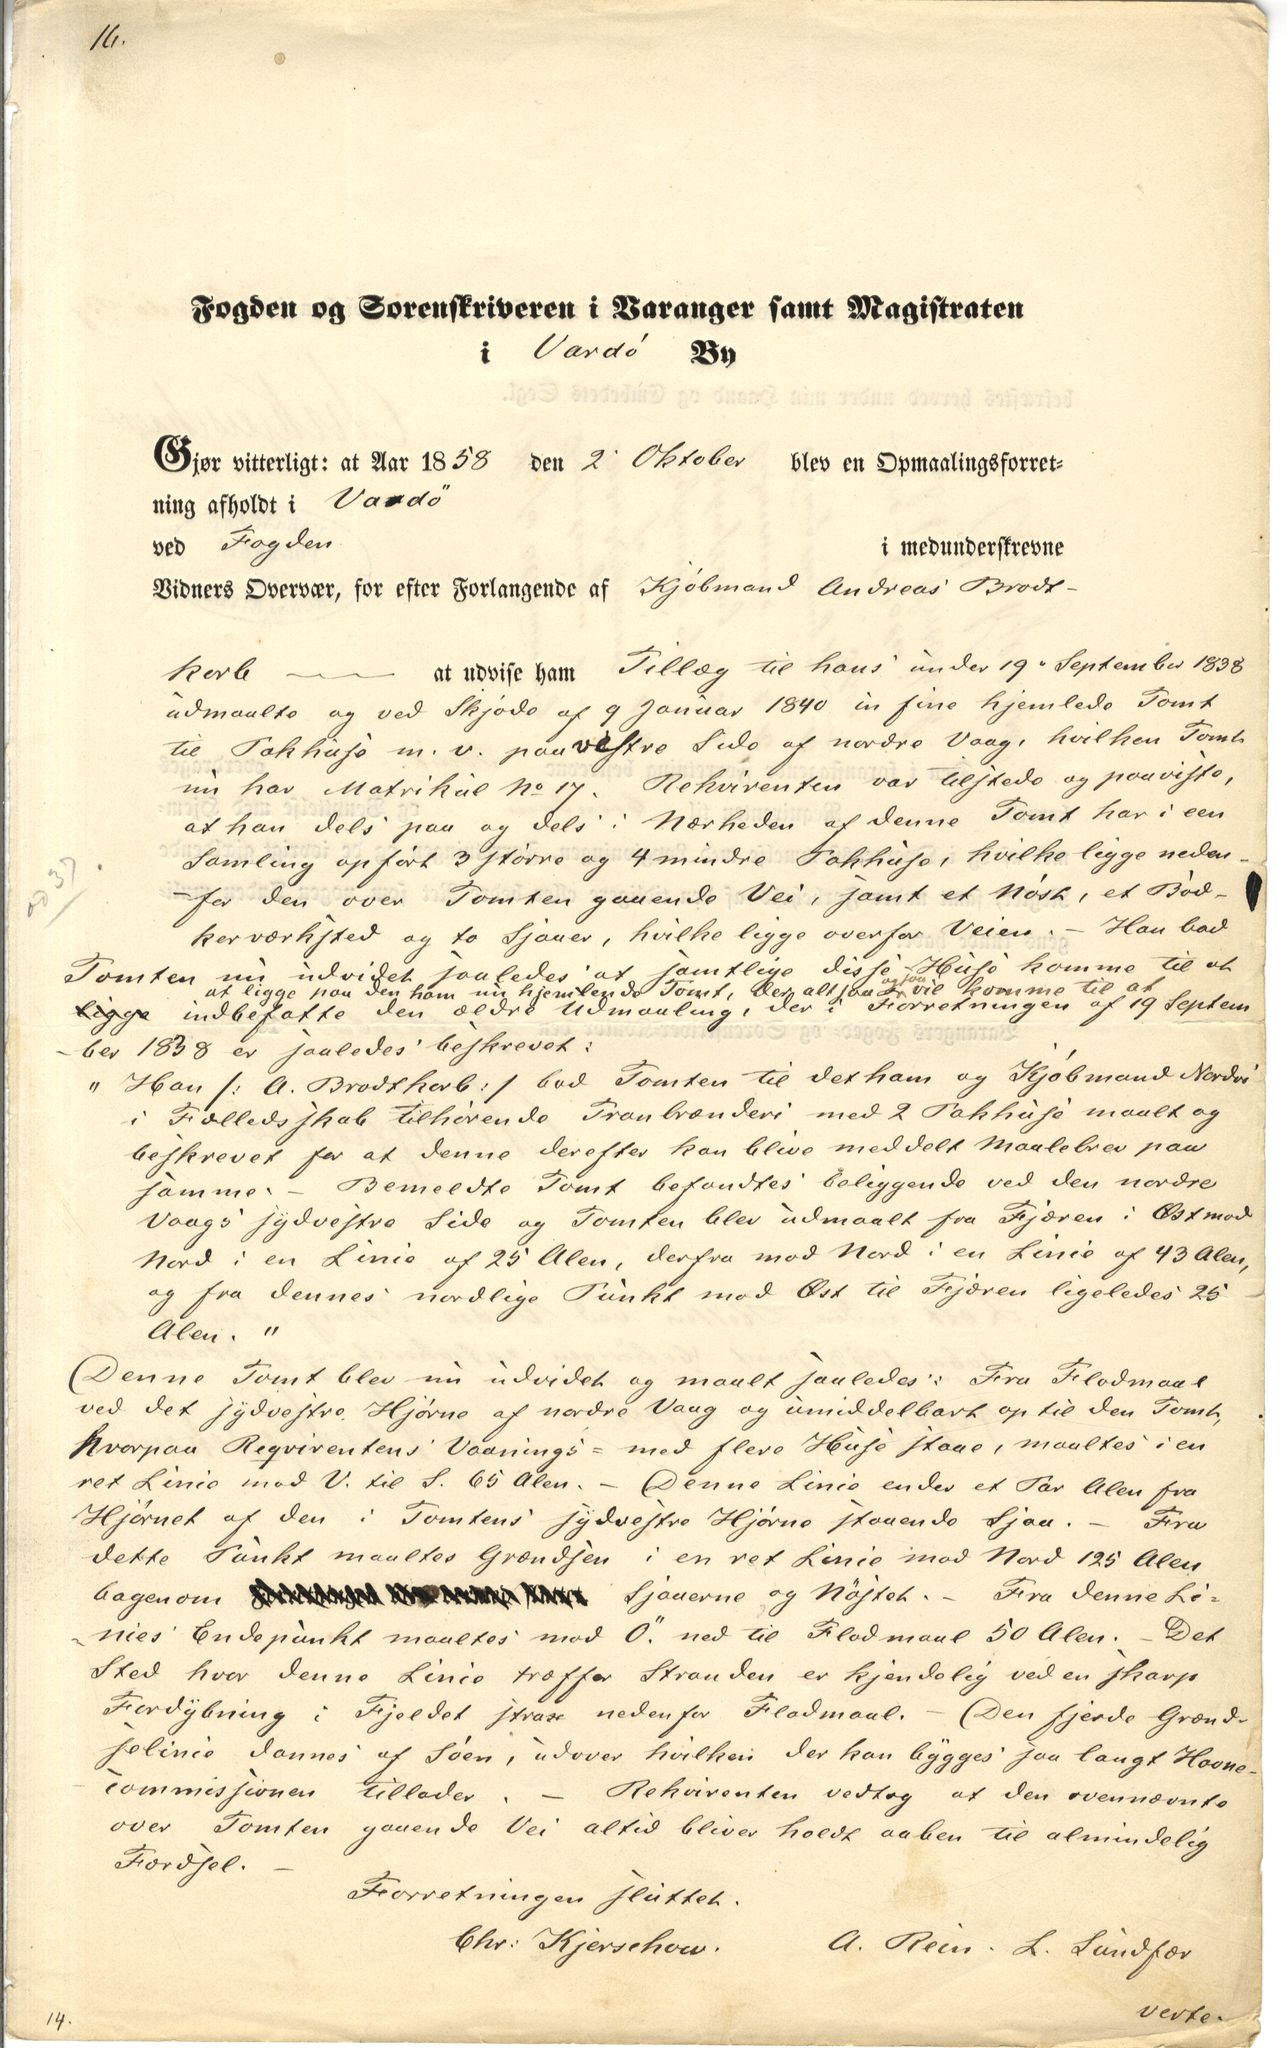 16.
Fogden og Sorenskriveren i Varanger samt Magistraten
i Vardö By
Gjør vitterligt: at Aar 1858 den 2' Oktober blev en Opmaalingsforret-
ning afholdt i Vardö
ved Fogden i medunderskrevne
Vidners Overvær, for efter Forlangende af Kjöbmand Andreas Brodt-
korb at udvise ham Tillæg til hans under 19. September 1838
udmaalte og ved Skjöde af 9 Januar 1840 in fine hjemlede Tomt
til Pakhuse m. v. paa vestre Side af nordre Vaag, hvilken Tomt
nu har Matrikul No 17. Rekvirenten var tilstede og paaviste,
at han dels paa og dels i Nærheden af denne Tomt har i een
Samling opfört 3 större og 4 mindre Pakhuse, hvilke ligge neden-
-for den over Tomten gaaende Vei, samt et Nöst, et Böd-
kerværksted og to Sjaaer, hvilke ligge overfor Veien. - Han bad
Tomten nu udvidet saaledes at samtlige disse Huse komme til at
at ligge paa den ham nu hjemlende Tomt, der altsaa vil komme til at
ligge indbefatte den ældre Udmaaling, der i Forretningen af 19 Septem
-ber 1838 er saaledes beskrevet:
" Han /: A. Brodtkorb :/ bad Tomten til det ham og Kjöbmand Nordvi
i Fælledsskab tilhörende Tranbrænderi med 2 Pakhuse maalt og
beskrevet for at denne derefter kan blive meddelt Maalebrev paa
samme. - Bemeldte Tomt befandtes beliggende ved den nordre
Vaags sydvestre Side og Tomten blev udmaalt fra Fjæren i Øst mod
Nord i en Linie af 25 Alen, derfra mod Nord i en Linie af 43 Alen,
og fra dennes nordlige Punkt mod Øst til Fjæren ligeledes 25
Alen. "
Denne Tomt blev nu udvidet og maalt saaledes: Fra Flodmaal
ved det sydvestre Hjörne af nordre Vaag og umiddelbart op til den Tomt,
hvorpaa Reqvirentens Vaanings- med flere Huse staae, maaltes i en
ret Linie mod V. til S. 65 Alen. - Denne Linie ender et Par Alen fra
Hjörnet af den i Tomtens sydvestre Hjörne staaende Sjaa. - Fra
dette Punkt maaltes Grændsen i en ret Linie mod Nord 125 Alen
bagenom Sjaaerne og Nöstet. - Fra denne Li-
nies Endepunkt maaltes mod Ö. ned til Flodmaal 50 Alen. - Det
Sted hvor denne Linie træffer Stranden er kjendelig ved en skarp
Fordybning i Fjeldet strax nedenfor Flodmaal. - Den fjerde Grænd-
selinie dannes af Söen, udover hvilken der kan bygges saa langt Havne-
Commissionen tillader. - Rekvirenten vedtog at den ovennævnte
over Tomten gaaende Vei altid bliver holdt aaben til almindelig
Færdsel. -
Forretningen sluttet.
Chr: Kjerschow. A. Rein. L. Sundfær
verte.
14.